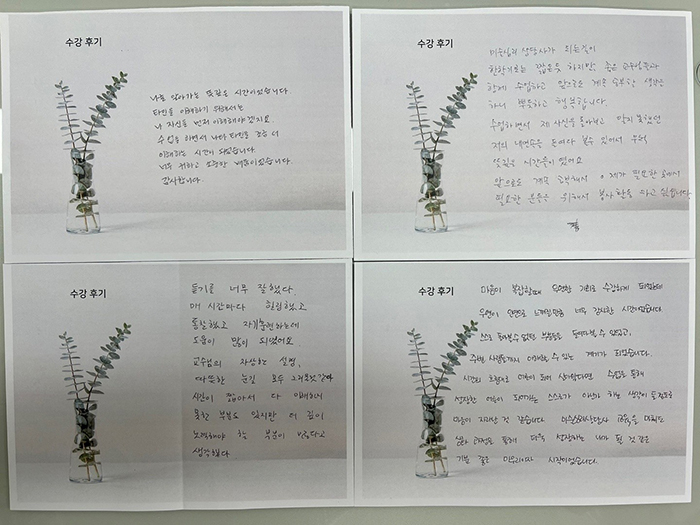 수강 후기
나를 알아가는 뜻깊은 시간이었습니다.
타인을 이해하기 위해서는
나 자신을 먼저 이해해야겠지요
수업을 하면서 나와 타인을 좀더 더
이해하는 시간이 되었습니다.
너무 귀하고 소중한 배움이었습니다
감사합니다
수강 후기
미술심리 상담사가 되는길이
한학기로는 짧은듯 하지만 좋은 교수님들과
함께 수업하고 앞으로 계속 공부할 생각을
하니 뿌듯하고 행복합니다.
수업하면서 제 자신을 돌아보고 알지 못했던
저의 내면속을 들여다 볼수 있어서 너무
뜻깊은 시간들이었어요
앞으로도 계속 공부해서 제가 필요한 곳에서
필요한 분들을 위해서 봉사활동을 하고 싶습니다
수강 후기
듣기를 너무 잘했다.
매 시간마다 힐링했고
통찰했고 자기표현하는데
도움이 많이 되었어요
교수님의 자상한 설명,
따뜻한 눈길 모두
시간이 짧아서 다 이해하지
못한 부분도 있지만 더 깊이
노력해야 할 부분이 많다고
생각했다
수강 후기
마음이 복잡할때 우연한 기회로 수강하게 되었는데
우연이 인연으로 느껴질만큼 너무 감사한 시간이었습니다
스스로 돌아볼수 없었던 부분들을 들여다볼 수 있었고,
주변 사람들까지 이해할 수 있는 계기가 되었습니다.
시간의 흐름대로 어른이 되어 살아왔다면 수업을 통해
성장한 어른이 되어가는 스스로가 아닌가 하는 생각이 들 정도로
마음이 자라난 것 같습니다. 미술심리상담사 과정을 마쳐도
심화 과정을 통해 더욱 성장하는 내가 될 것 같은
기분 좋은 마무리이자 시작이었습니다.